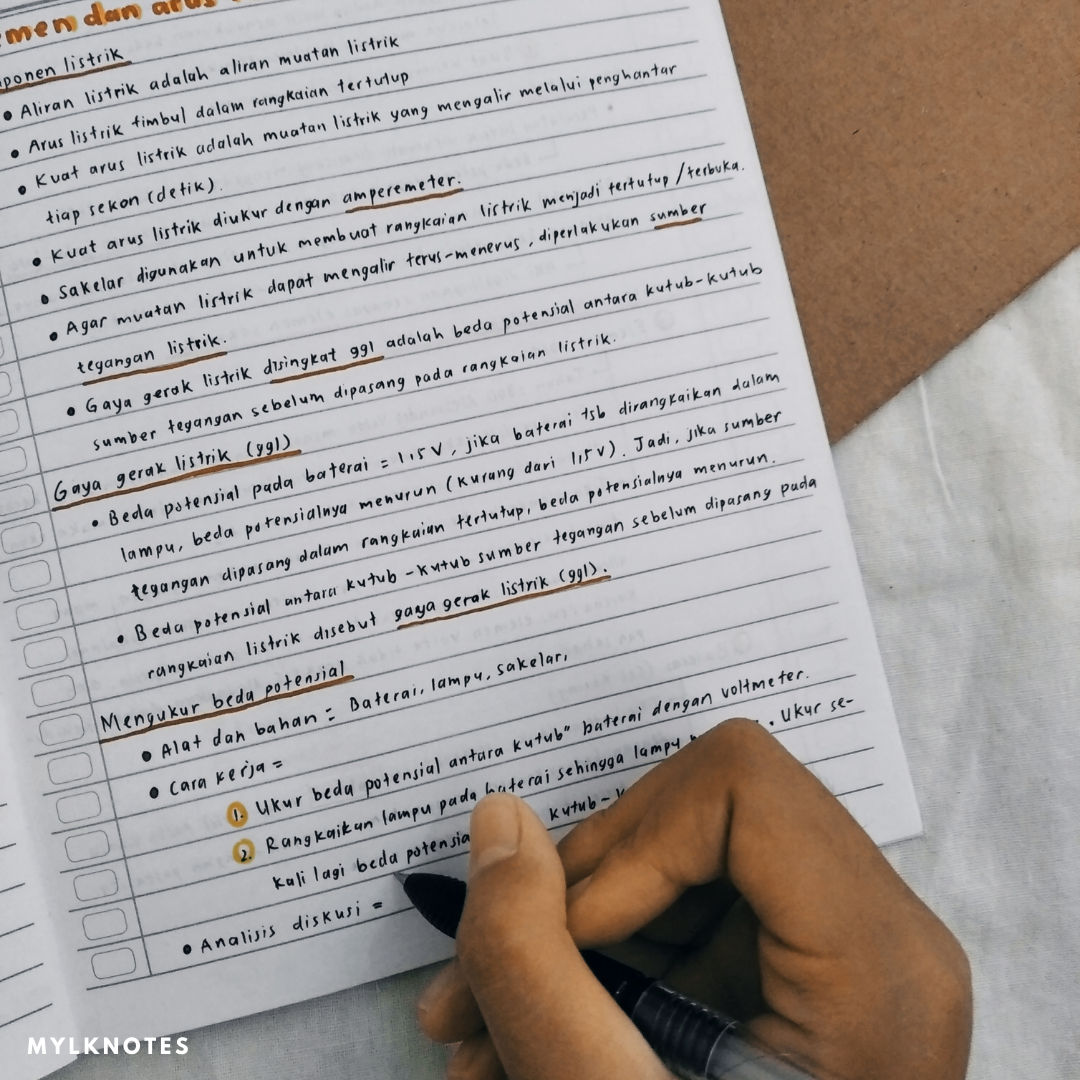 men dan arus
ponen listrik
• Aliran listrik adalah aliran muatan listrik
• Arus listrik timbul dalam rangkaian tertutup
• Kuat arus listrik adalah muatan listrik yang mengalir melalui penghantar
tiap sekon (detik).
• Kuat arus listrik diukur dengan amperemeter.
• Sakelar digunakan untuk membuat rangkaian listrik menjadi tertutup / terbuka.
• Agar muatan listrik dapat mengalir terus-menerus, diperlakukan sumber
tegangan listrik.
• Gaya gerak listrik disingkat ggl adalah beda potensial antara kutub-kutub
sumber tegangan sebelum dipasang pada rangkaian listrik.
Gaya gerak listrik (ggl)
• Beda potensial pada baterai = 1,5 V, jika baterai tsb dirangkaikan dalam
lampu, beda potensialnya menurun (kurang dari 1,5 V). Jadi, jika sumber
tegangan dipasang dalam rangkaian tertutup, beda potensialnya menurun.
• Beda potensial antara kutub-kutub sumber tegangan sebelum dipasang pada
rangkaian listrik disebut gaya gerak listrik (ggl).
Mengukur beda potensial
• Alat dan bahan = Baterai, lampu, sakelar,
• Cara kerja =
1. Ukur beda potensial antara kutub" baterai dengan voltmeter.
2. Rangkaikan lampu pada baterai sehingga lampu . Ukur se-
kali lagi beda potensia kutub-
• Analisis diskusi =
MYLKNOTES